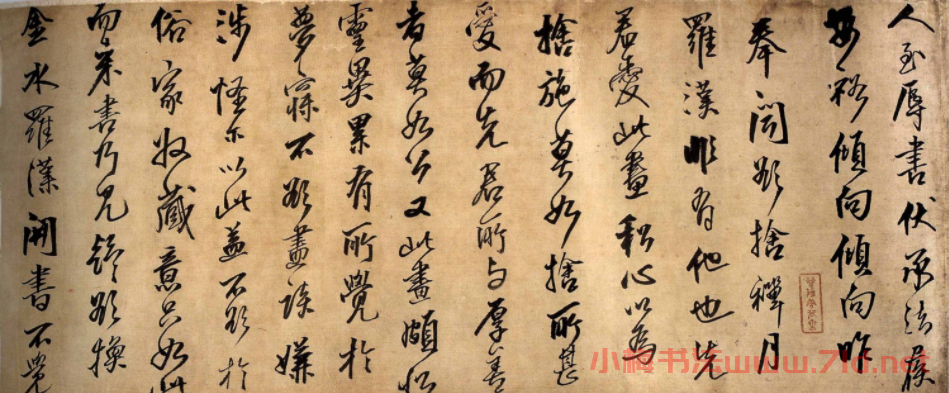 人至辱書伏承法履
安裕傾向傾向昨
奉聞欲捨禪月
羅漢非有他也先
君愛此畫私心以為
捨施莫如捨所甚
愛而先君所与厚善
者莫如公又此畫頗似
靈異累有所覺於
夢寐不欲盡談嫌
涉怪尔以此益不欲於
俗家收藏意只如此
而來書乃見疑欲換
金水羅漢開書不覺
小梅书法www.71d.net